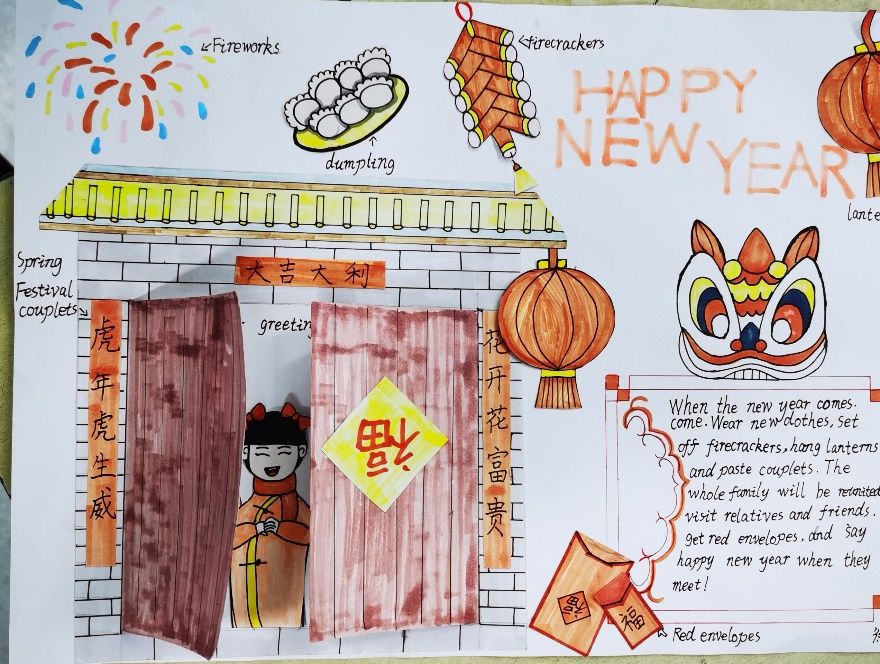 Fireworks
firecrackers
dumpling
HAPPY
NEW YEAR
Spring
Festival
couplets
大吉大利
虎年虎生威
花开花富贵
福
When the new year comes.
come. Wear new clothes, set
off firecrackers, hang lanterns
and paste couplets. The
whole family will be reunited
visit relatives and friends.
get red envelopes, and say
happy new year when they
meet!
福
福
Red envelopes